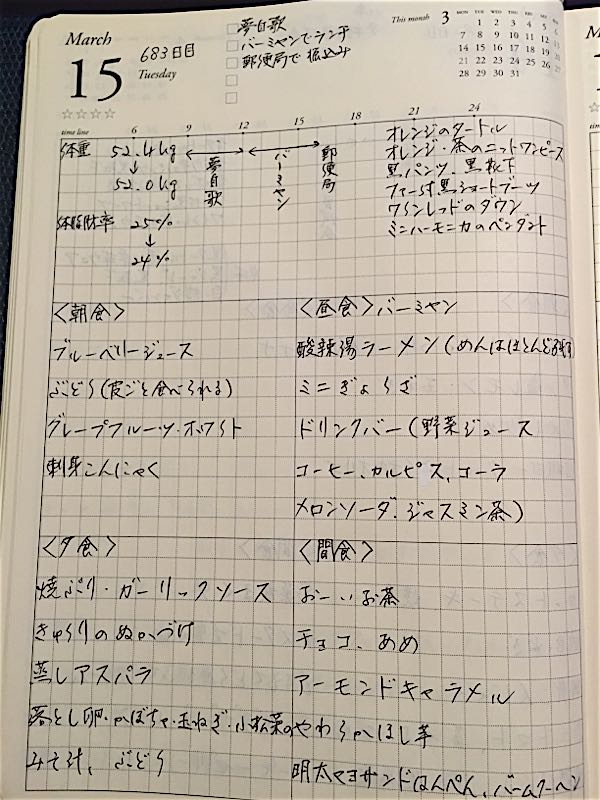 March
15
Tuesday
683日目
夢自歌
バーミヤンでランチ
郵便局で振込み
This month 3
MON TUE WED THU FRI SAT SUN
1 2 3 4 5 6
7 8 9 10 11 12 13
14 15 16 17 18 19 20
21 22 23 24 25 26 27
28 29 30 31
time line 6 9 12 15 18 21 24
体重 52.4kg
↓
52.0kg
体脂肪率 25%
↓
24%
夢自歌
バーミヤン
郵便局
オレンジのタートル
オレンジ・茶のニットワンピース
黒パンツ、黒靴下
ファー付黒ショートブーツ
ワインレッドのダウン
ミニハーモニカのペンダント
〈朝食〉
ブルーベリージュース
ぶどう(皮ごと食べられる)
グレープフルーツ・ホワイト
刺身こんにゃく
〈昼食〉バーミヤン
酸辣湯ラーメン(めんはほとんど
ミニぎょうざ
ドリンクバー(野菜ジュース
コーヒー、カルピス、コーラ
メロンソーダ、ジャスミン茶)
〈夕食〉
焼ぶり・ガーリックソース
きゅうりのぬかづけ
蒸しアスパラ
落とし卵・かぼちゃ・玉ねぎ・小松菜の
みそ汁、ぶどう
〈間食〉
おーいお茶
チョコ、あめ
アーモンドキャラメル
やわらかほし芋
明太マヨサンドはんぺん、バームクーヘン